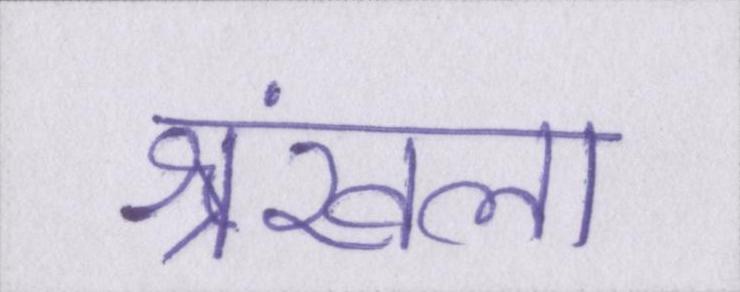 श्रंखला